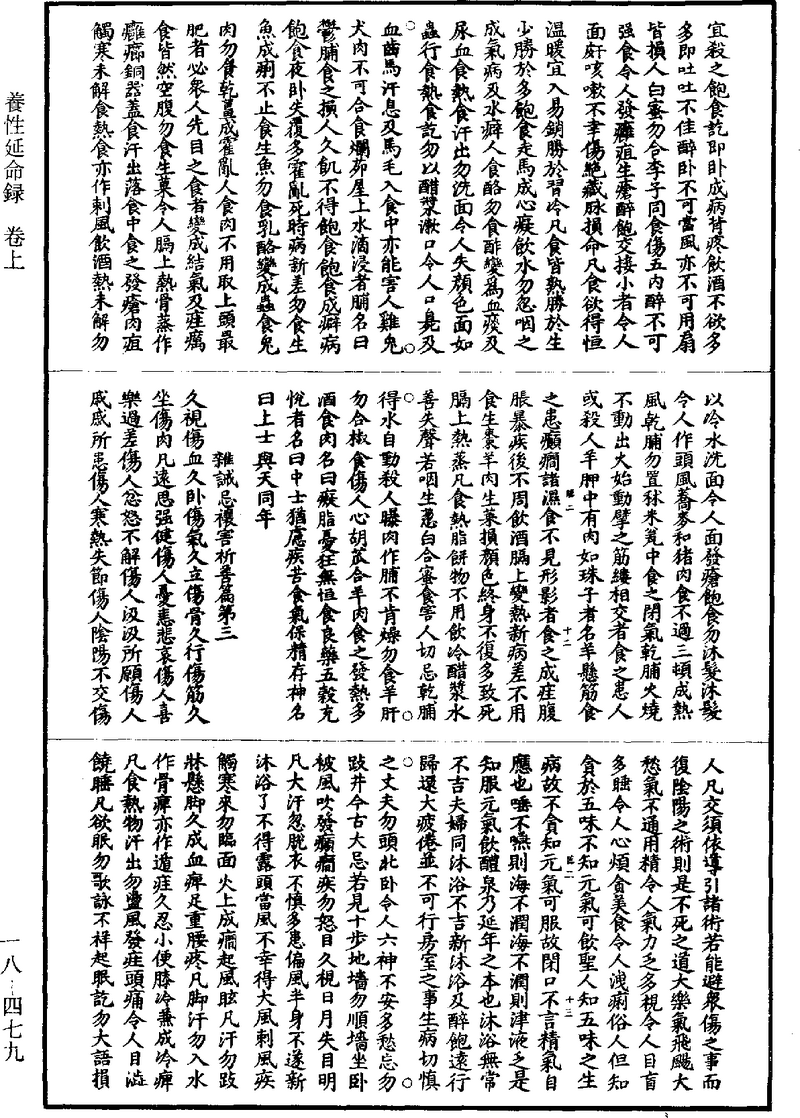 養性延命録　卷上
一八·四七九
宜殺之飽食訖即卧成病背疼飲酒不欲多
多即吐吐不佳醉卧不可當風亦不可用扇
皆損人白蜜勿合李子同食傷五内醉不可
强食令人發癰疽生瘡醉飽交接小者令人
面皯咳嗽不幸傷絶藏脉損命凡食欲得恒
温暖宜入易銷勝於習冷凡食皆熟勝於生
少勝於多飽食走馬成心癡飲水勿忽咽之
成氣病及水癖人食酪勿食酢變爲血痰及
尿血食熱食汗出勿洗面令人失顔色面如
蟲行食熱食訖勿以醋漿漱口令人口臭及
血齒馬汗息及馬毛入食中亦能害人雞兔
犬肉不可合食爛茆屋上水滴浸者脯名曰
鬱脯食之損人久飢不得飽食飽食成癖病
飽食夜卧失覆多霍亂死時病新差勿食生
魚成痢不止食生魚勿食乳酪變成蟲食兔
肉勿食乾薑成霍亂人食肉不用取上頭最
肥者必衆人先目之食者變成結氣及疰癘
食皆然空腹勿食生菓令人膈上熱骨蒸作
癰癤銅器蓋食汗出落食中食之發瘡肉疽
觸寒未解食熱食亦作刺風飲酒熱未解勿
以冷水洗面令人面發瘡飽食勿沐髮沐髮
令人作頭風蕎麥和猪肉食不過三頓成熱
風乾脯勿置秫米瓮中食之閉氣乾脯火燒
不動出火始動擘之筋縷相交者食之患人
或殺人羊胛中有肉如珠子者名羊懸筋食
之患癲癇諸濕食不見形影者食之成疰腹
脹暴疾後不周飲酒膈上變熱新病差不用
食生棗羊肉生菜損顔色終身不復多致死
膈上熱蒸凡食熱脂餅物不用飲冷醋漿水
善失聲若咽生葱白合蜜食害人切忌乾脯
得水自動殺人曝肉作脯不肯燥勿食羊肝
勿合椒食傷人心胡苽合羊肉食之發熱多
酒食肉名曰癡脂憂狂無恒食良藥五穀充
悅者名曰中士猶慮疾苦食氣保精存神名
曰上士與天同年
雜誡忌禳害祈善篇第三
久視傷血久卧傷氣久立傷骨久行傷筋久
坐傷肉凡遠思强健傷人憂恚悲哀傷人喜
樂過差傷人忿怒不解傷人汲汲所願傷人
戚戚所患傷人寒熱失節傷人陰陽不交傷
人凡交須依導引諸術若能避衆傷之事而
復陰陽之術則是不死之道大樂氣飛颺大
愁氣不通用精令人氣力乏多視令人目盲
多睡令人心煩貪美食令人洩痢俗人但知
貪於五味不知元氣可飲聖人知五味之生
病故不貪知元氣可服故閉口不言精氣自
應也唾不嚥則海不潤海不潤則津液乏是
知服元氣飲醴泉乃延年之本也沐浴無常
不吉夫婦同沐浴不吉新沐浴及醉飽遠行
歸還大疲倦並不可行房室之事生病切慎
之丈夫勿頭北卧令人六神不安多愁忘勿
跂井今古大忌若見十步地墻勿順墻坐卧
被風吹發癲癇疾勿怒目久視日月失目明
凡大汗忽脱衣不慎多患偏風半身不遂新
沐浴了不得露頭當風不幸得大風刺風疾
觸寒來勿臨面火上成癇起風眩凡汗勿跂
牀懸脚久成血痺足重腰疼凡脚汗勿入水
作骨痺亦作遁疰久忍小便膝冷兼成冷痺
凡食熱物汗出勿盪風發疰頭痛令人目澁
饒睡凡欲眠勿歌詠不祥起眠訖勿大語損